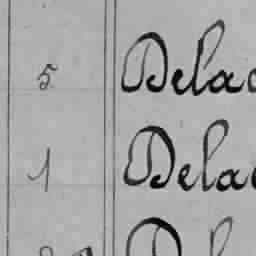 5 Delac
1 Dela